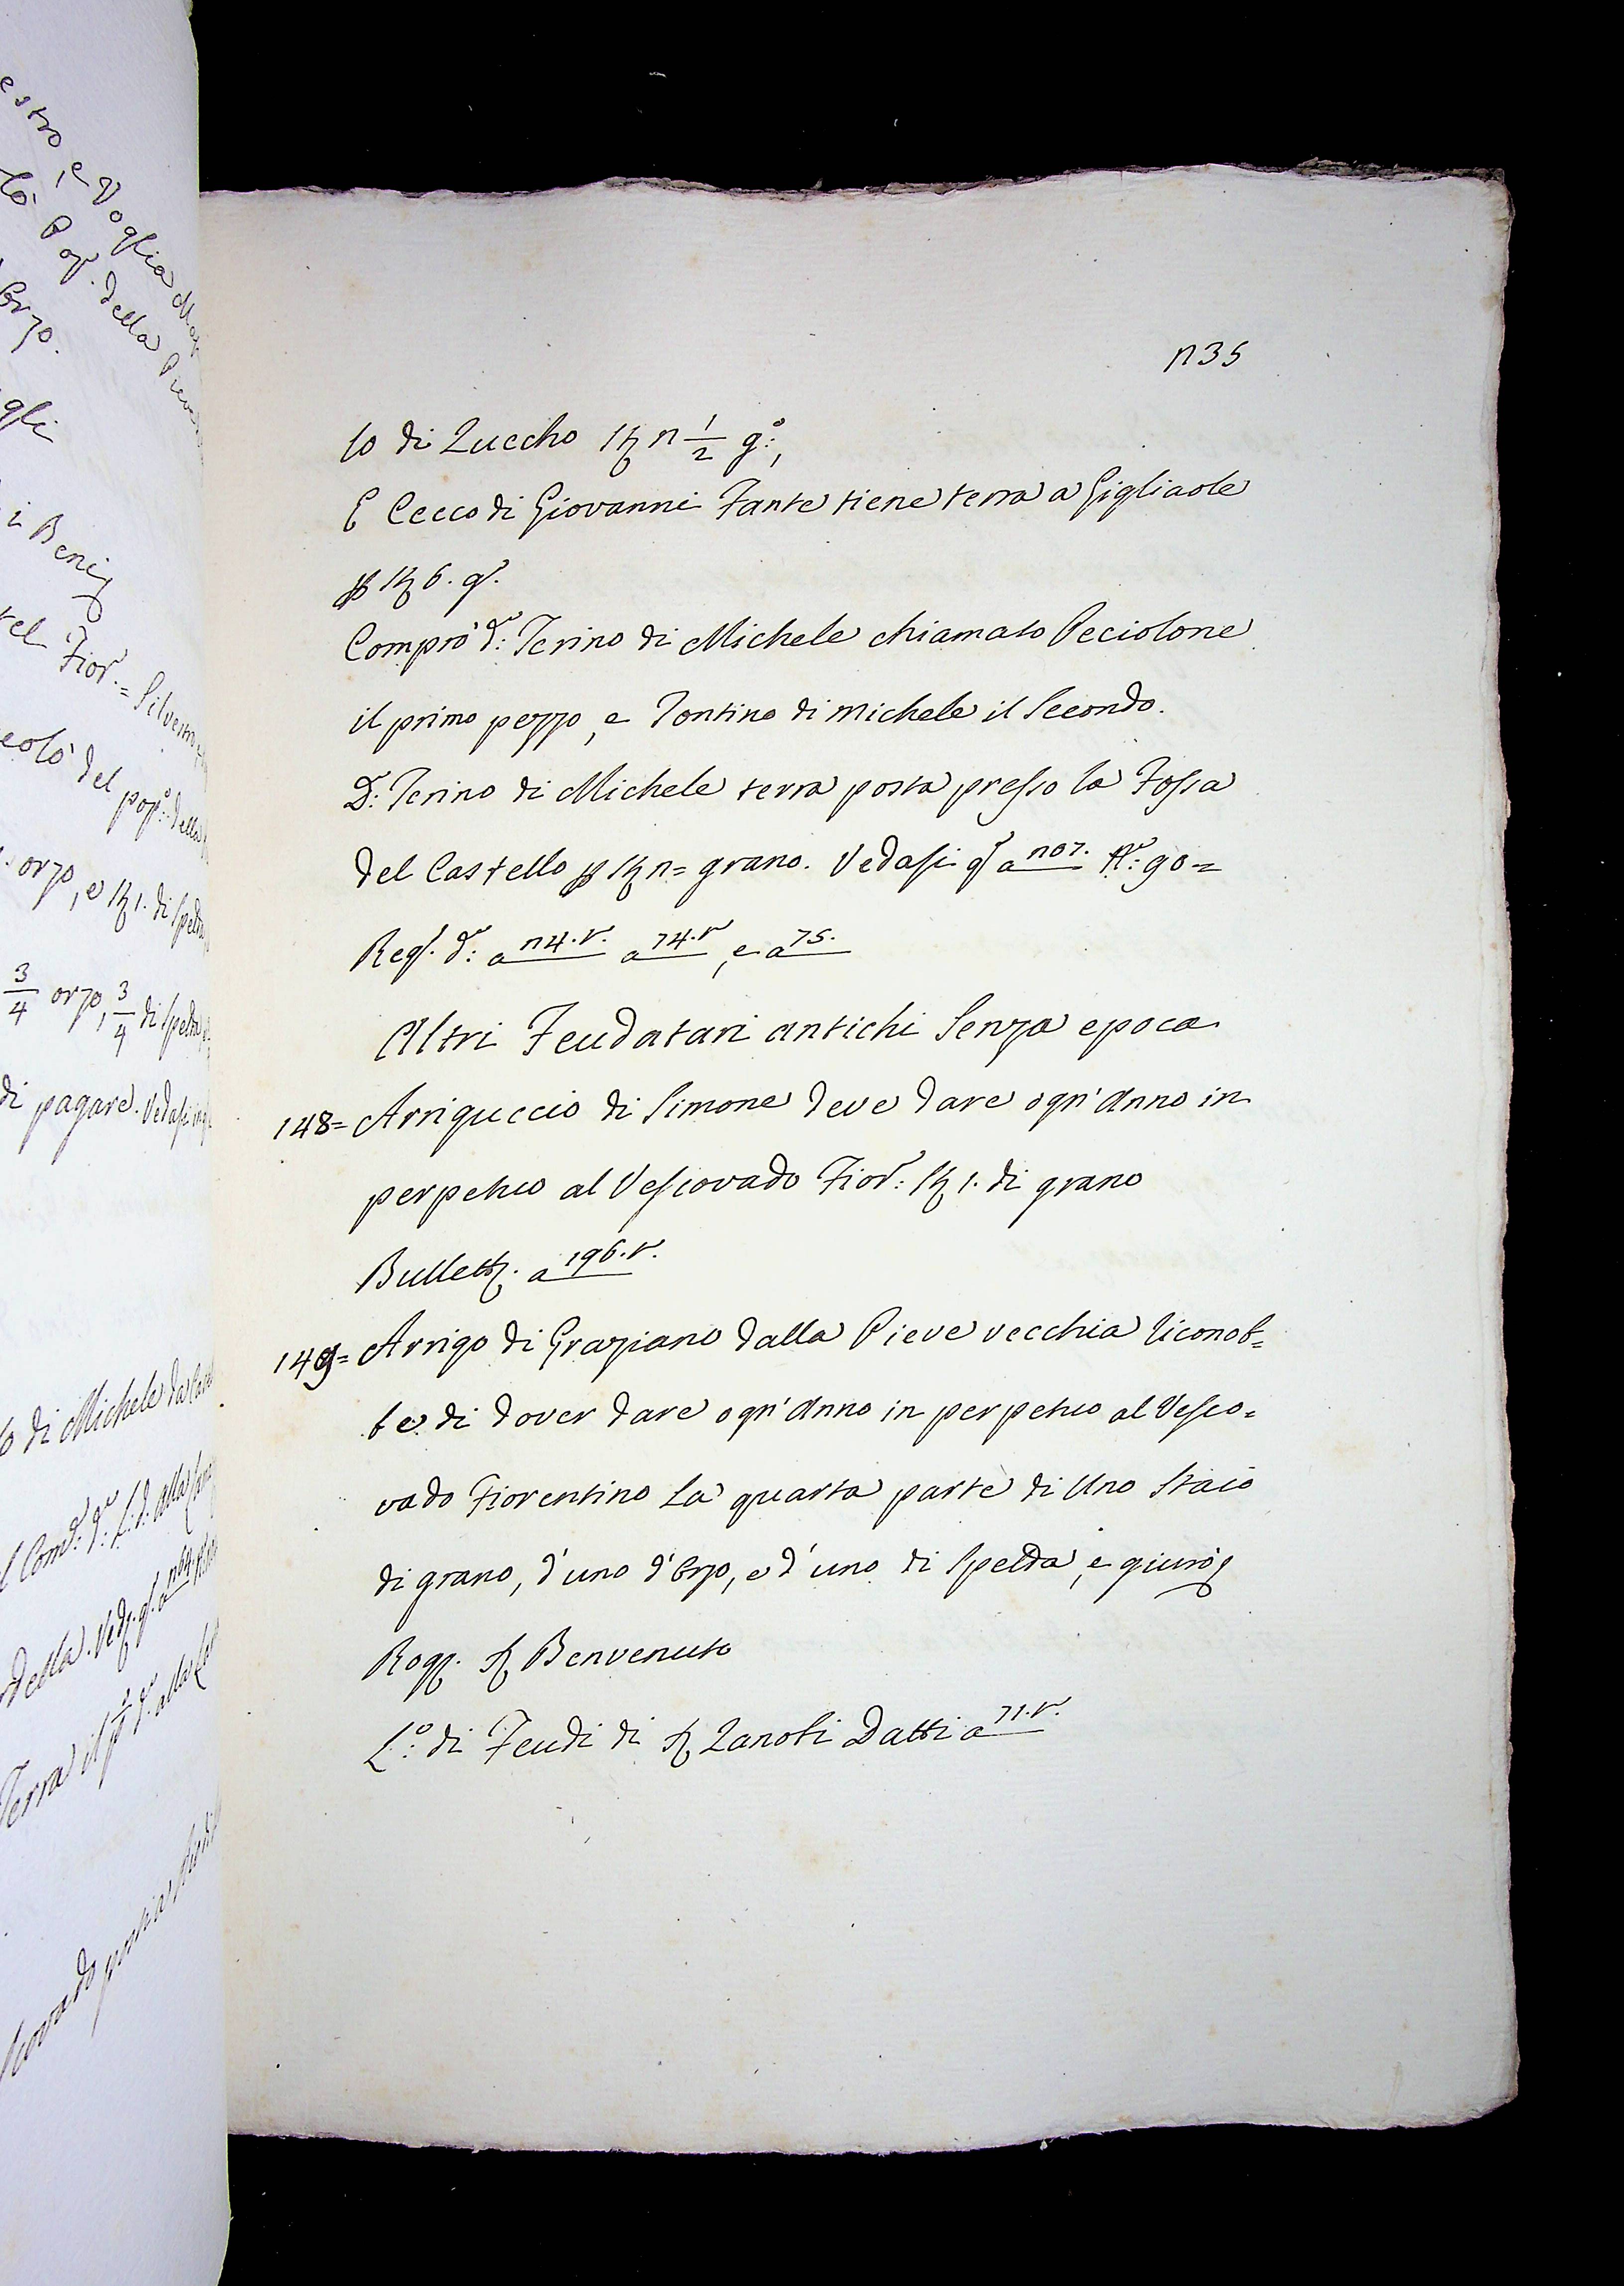 n35
so di Zuccho St̃ n 1/2 g:º,
E Cecco di Giovanni Fante tiene terra a Gigliaole
p St̃ 6. gr.
Comprò d:º Terino di Michele chiamato Peciolone
il primo pezzo, e Tontino di Michele il Secondo.
D:º Terino di Michele terra posta presso la Fossa
del Castello p St̃ n= grano. Vedasi qr a n07. N:º 90=
Reg. d:º a n4.v. a 74.v, e a 75.
Altri Feudatari antichi Senza epoca
148= Arriguccio di Simone deve dare ogn'Anno in
perpetuo al Vescovado Fior: St̃ 1. di grano
Bullett. a 196.v.
149= Arrigo di Graziano dalla Pieve vecchia riconob=
be di dover dare ogn'Anno in perpetuo al Vesco=
vado Fiorentino La quarta parte di Uno Staio
di grano, d'uno d'Orzo, e d'uno di Spelda, e giurò
Rog. Sr Benvenuto
L:º di Feudi di Sr Zanobi Datti a 71.v.
estro, e Voglia
Pop. della Pieve
Orzo.
gli
i Beni
Fior.= Silvestro
colò del pop:º della
orzo, e St̃ 1. di Spelda
3/4 orzo, 3/4 di Spelda
di pagare. Vedasi
so di Michele da
Com: d: alla
della. Ved.
Terra il alla